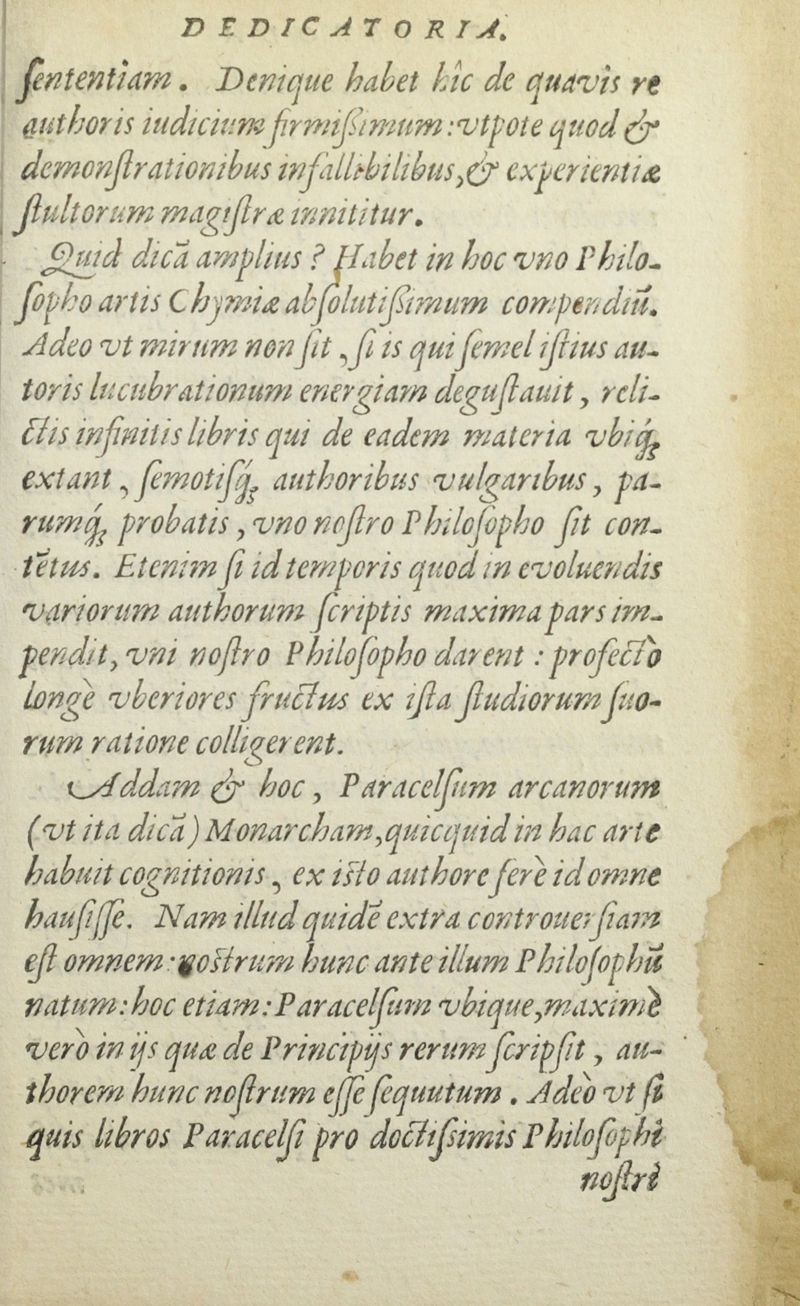 DEDICATORIA.
ſententiam. Denique habet hîc de quavis re
authoris iudicium firmiſsimum: vtpote quod &
demonſtrationibus infallibilibus, & experientiæ
ſtultorum magiſtræ innititur.
Quid dicā amplius? Habet in hoc vno Philo-
ſopho artis Chymiæ abſolutiſsimum compendiū.
Adeo vt mirum non ſit, ſi is qui ſemel iſtius au-
toris lucubrationum energiam deguſtauit, reli-
ctis infinitis libris qui de eadem materia vbiq́ꝫ
extant, ſemotiſq́ꝫ authoribus vulgaribus, pa-
rumq́ꝫ probatis, vno noſtro Philoſopho ſit con-
tētus. Etenim ſi id temporis quod in evoluendis
variorum authorum ſcriptis maxima pars im-
pendit, vni noſtro Philoſopho darent: profectò
longè vberiores fructus ex iſta ſtudiorum ſuo-
rum ratione colligerent.
Addam & hoc, Paracelſum arcanorum
(vt ita dicā) Monarcham, quicquid in hac arte
habuit cognitionis, ex iſto authore ferè id omne
hauſiſſe. Nam illud quidē extra controuerſiam
eſt omnem: noſtrum hunc ante illum Philoſophū
natum: hoc etiam: Paracelſum vbique, maximè
verò in ijs quæ de Principijs rerum ſcripſit, au-
thorem hunc noſtrum eſſe ſequutum. Adeò vt ſi
quis libros Paracelſi pro doctiſsimis Philoſophi
noſtri